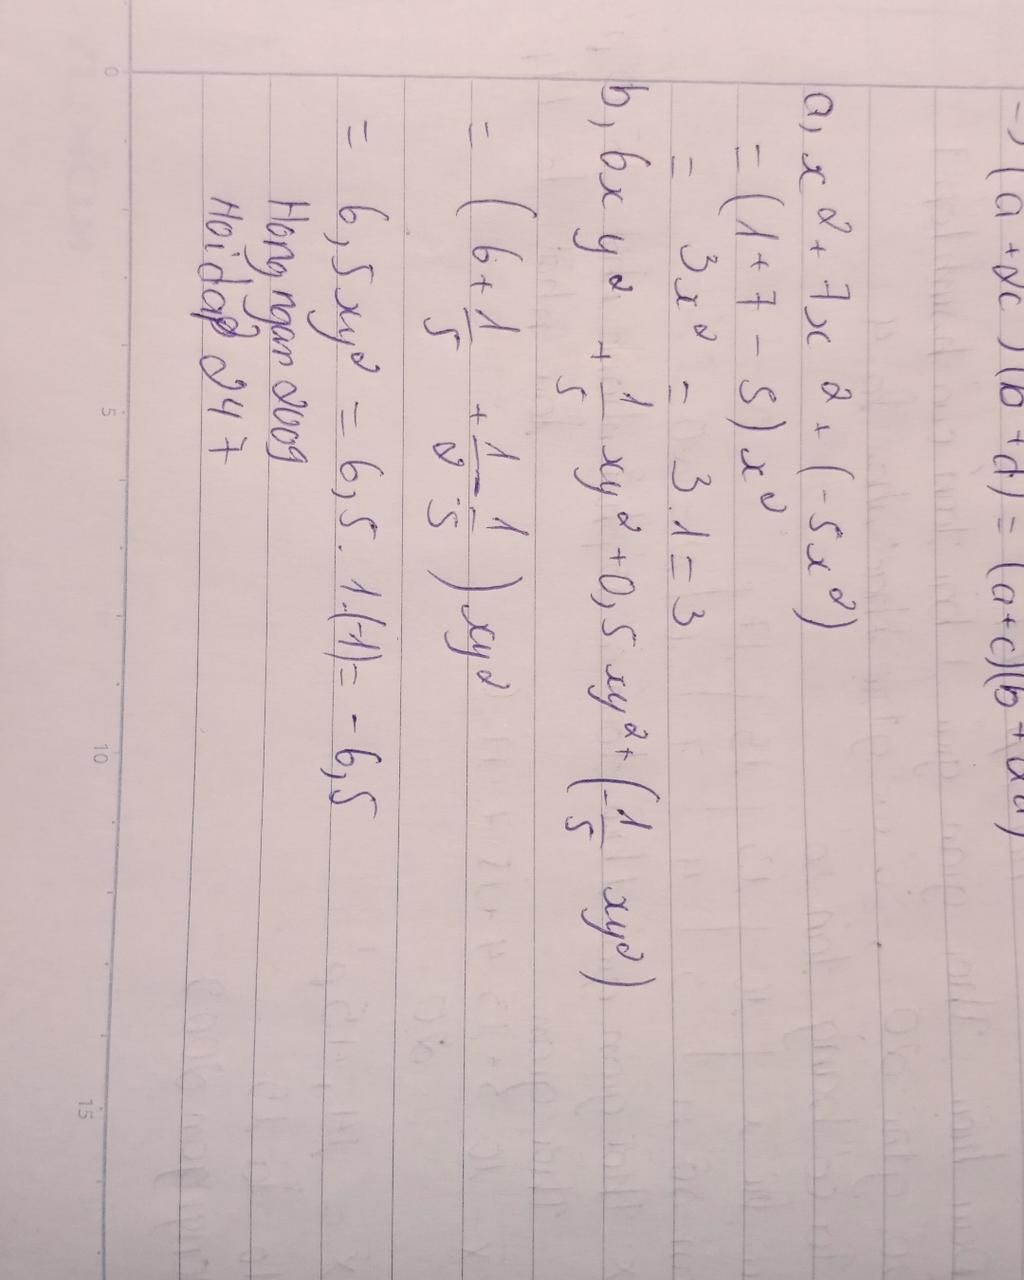 -) (a+2c)(b+d) = (a+c)(b+2d)
a, x²+7x²+(-5x²)
= (1+7-5)x²
= 3x² = 3.1=3
b, 6xy² + 1/5 xy² + 0,5 xy² + (-1/5 xy²)
= (6+1/5 + 1/2 - 1/5) xy²
= 6,5xy² = 6,5.1.(-1) = -6,5
Hong ngan 2009
Hoi dap 247
0
5
10
15